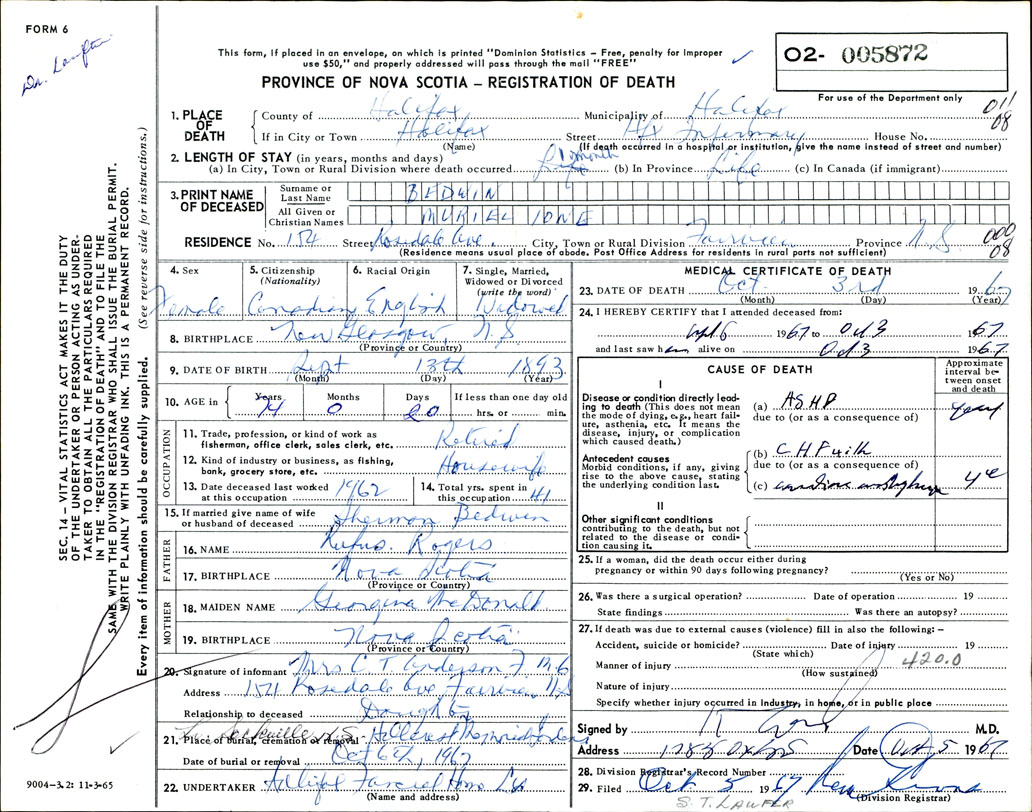 FORM 6
This form, if placed in an envelope, on which is printed "Dominion Statistics – Free, penalty for improper
use $50," and properly addressed will pass through the mail "FREE"
O2- 005872
PROVINCE OF NOVA SCOTIA – REGISTRATION OF DEATH
For use of the Department only
1. PLACE OF DEATH
County of Halifax Municipality of Halifax 011
If in City or Town Halifax Street Hfx Infirmary House No. 08
(Name) (If death occurred in a hospital or institution, give the name instead of street and number)
2. LENGTH OF STAY (in years, months and days)
(a) In City, Town or Rural Division where death occurred month (b) In Province Life (c) In Canada (if immigrant)
3. PRINT NAME OF DECEASED
Surname or Last Name BEDWIN
All Given or Christian Names MURIEL IONE
RESIDENCE No. 154 Street Rosedale Ave. City, Town or Rural Division Fairview Province N.S 000
(Residence means usual place of abode. Post Office Address for residents in rural parts not sufficient) 08
4. Sex Female
5. Citizenship (Nationality) Canadian
6. Racial Origin English
7. Single, Married, Widowed or Divorced (write the word) Widowed
8. BIRTHPLACE New Glasgow, N.S
(Province or Country)
9. DATE OF BIRTH Sept 13th 1893
(Month) (Day) (Year)
10. AGE in Years 74 Months 0 Days 20 If less than one day old hrs. or min.
OCCUPATION
11. Trade, profession, or kind of work as fisherman, office clerk, sales clerk, etc. Retired
12. Kind of industry or business, as fishing, bank, grocery store, etc. Housewife
13. Date deceased last worked at this occupation 1962
14. Total yrs. spent in this occupation 41
15. If married give name of wife or husband of deceased Sherman Bedwin
FATHER
16. NAME Rufus Rogers
17. BIRTHPLACE Nova Scotia
(Province or Country)
MOTHER
18. MAIDEN NAME Georgina McDonald
19. BIRTHPLACE Nova Scotia
(Province or Country)
20. Signature of informant Mrs C. T. Anderson
Address 154 Rosedale Ave Fairview N.S
Relationship to deceased Daughter
21. Place of burial, cremation or removal Sackville N.S
Date of burial or removal Oct 6th, 1967
22. UNDERTAKER
(Name and address)
MEDICAL CERTIFICATE OF DEATH
23. DATE OF DEATH Oct 3rd 1967
(Month) (Day) (Year)
24. I HEREBY CERTIFY that I attended deceased from:
1967 to Oct 3 1967
and last saw her alive on Oct 3 1967
CAUSE OF DEATH
Approximate interval between onset and death
I
Disease or condition directly leading to death (This does not mean the mode of dying, e.g., heart failure, asthenia, etc. It means the disease, injury, or complication which caused death.)
(a) ASHD
due to (or as a consequence of)
Antecedent causes
Morbid conditions, if any, giving rise to the above cause, stating the underlying condition last.
(b) CHF with
due to (or as a consequence of)
(c) cardiac
II
Other significant conditions
contributing to the death, but not related to the disease or condition causing it.
25. If a woman, did the death occur either during pregnancy or within 90 days following pregnancy?
(Yes or No)
26. Was there a surgical operation? Date of operation 19
State findings Was there an autopsy?
27. If death was due to external causes (violence) fill in also the following: –
Accident, suicide or homicide? Date of injury 19
(State which)
Manner of injury 420.0
(How sustained)
Nature of injury
Specify whether injury occurred in industry, in home, or in public place
Signed by M.D.
Address Date Oct 5 1967
28. Division Registrar's Record Number
29. Filed Oct 5 1967
(Division Registrar)
S. T. LAWFER
SEC. 14 – VITAL STATISTICS ACT MAKES IT THE DUTY
OF THE UNDERTAKER OR PERSON ACTING AS UNDER-
TAKER TO OBTAIN ALL THE PARTICULARS REQUIRED
IN THE "REGISTRATION OF DEATH" AND TO FILE THE
SAME WITH THE DIVISION REGISTRAR WHO SHALL ISSUE THE BURIAL PERMIT.
WRITE PLAINLY WITH UNFADING INK. THIS IS A PERMANENT RECORD.
Every item of information should be carefully supplied. (See reverse side for instructions.)
9004-3.2: 11-3-65